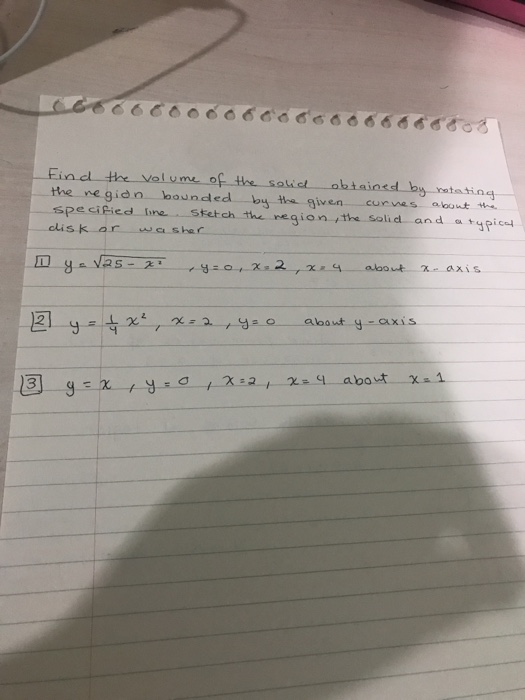 Find the volume of the solid obtained by rotating
the region bounded by the given curves about the
specified line. Sketch the region, the solid and a typical
disk or washer
1 y = √25 - x² , y = 0, x = 2, x = 4 about x-axis
2 y = 1/4 x², x = 2, y = 0 about y-axis
3 y = x, y = 0, x = 2, x = 4 about x = 1